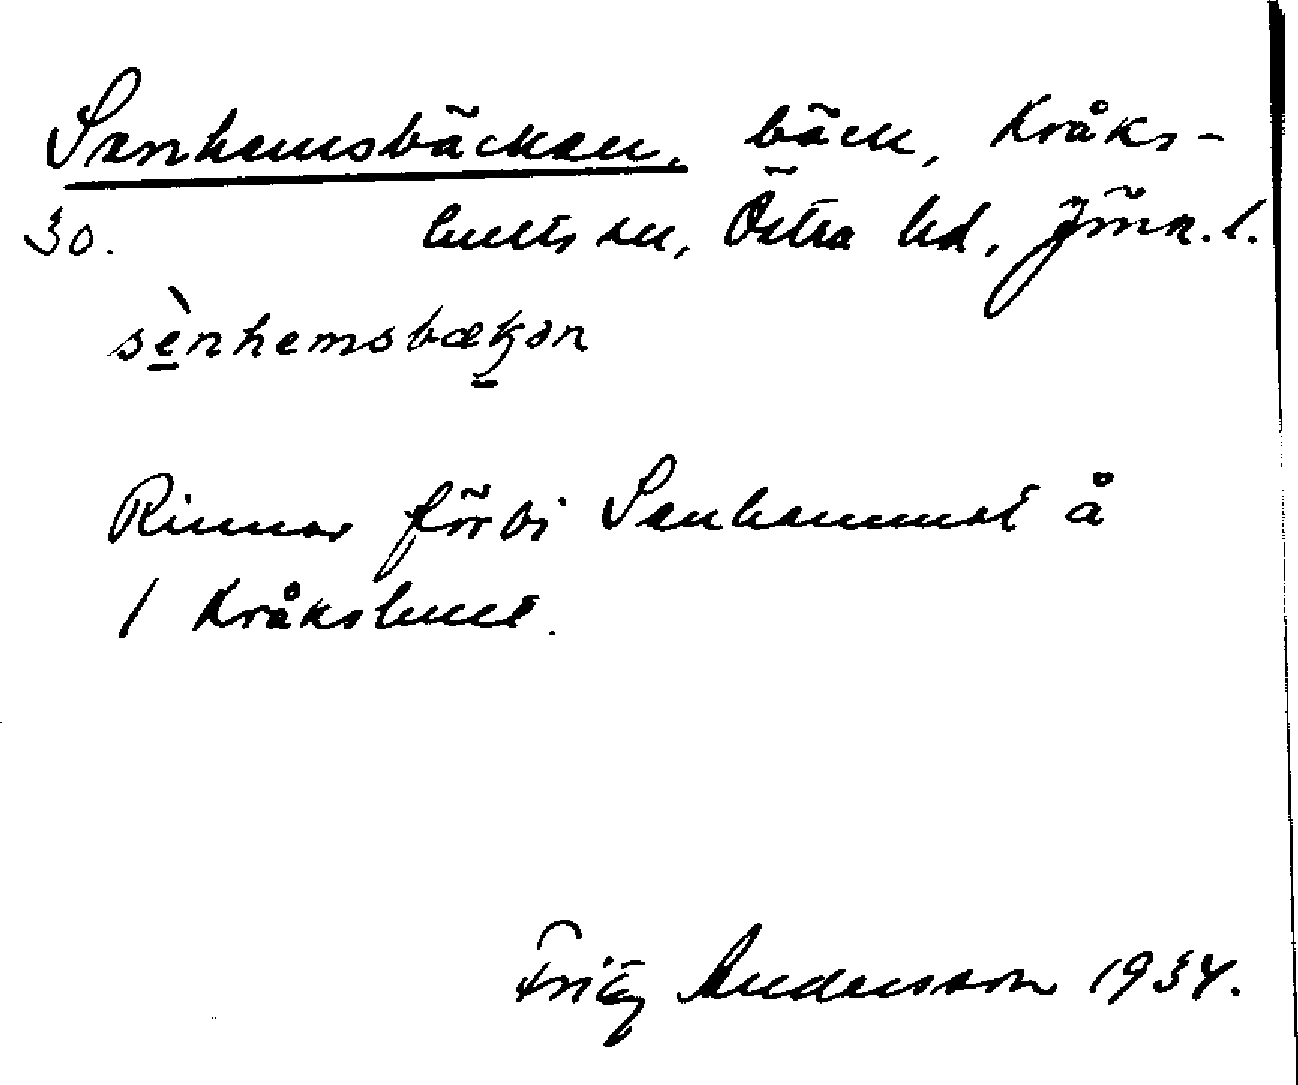 Senhemsbäcken, bäck, Kråks-
30. hults sn, Östra hd, Jönk. l.
sènhemsbækən
Rinner förbi Senhemmet å
/ Kråkshult.
Fritz Andersson 1934.